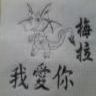 梅拉
我愛你